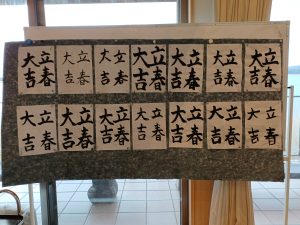 立春
大吉
立春
大吉
立春
大吉
立春
大吉
立春
大吉
立春
大吉
立春
大吉
立春
大吉
立春
大吉
立春
大吉
立春
大吉
立春
大吉
立春
大吉
立春
大吉